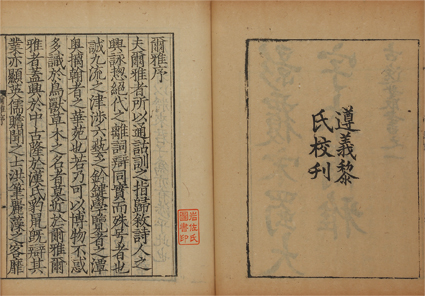 遵義黎
氏校刊
爾雅序
夫爾雅者所以通詁訓之指歸敘詩人之
興詠揔絕代之離詞辯同實而殊号者也
誠九流之津涉六藝之鈐鍵學覽者之潭
奧摛翰者之華苑也若乃可以博物不惑
多識於鳥獸草木之名者莫近於爾雅爾
雅者蓋興於中古隆於漢氏豹鼠既辯其
業亦顯英儒贍聞之士洪筆麗藻之客靡
岩佐氏
圖書印